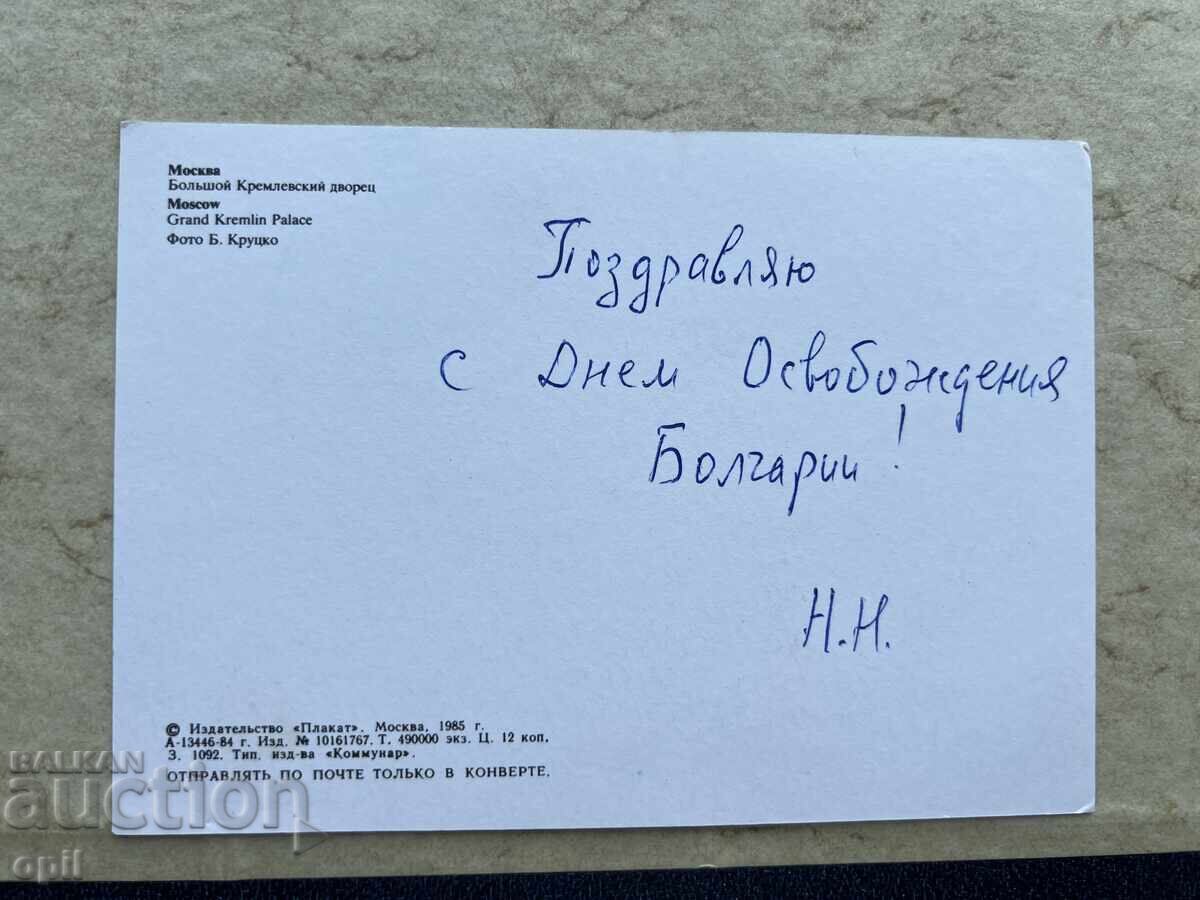 Москва
Большой Кремлевский дворец
Moscow
Grand Kremlin Palace
Фото Б. Круцко
Поздравляю
с Днем Освобождения
Болгарии!
Н.Н.
© Издательство «Плакат». Москва, 1985 г.
А-13446-84 г. Изд. № 10161767. Т. 490000 экз. Ц. 12 коп.
З. 1092. Тип. изд-ва «Коммунар».
ОТПРАВЛЯТЬ ПО ПОЧТЕ ТОЛЬКО В КОНВЕРТЕ.
BALKAN
auction
opil